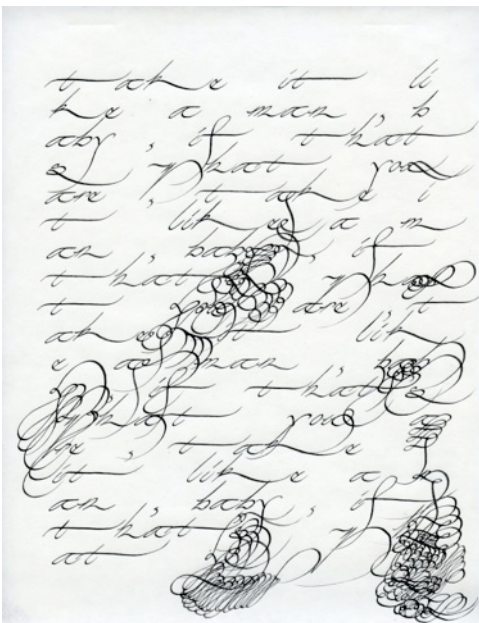 take it li
ke a man, b
aby, if that
s what you
are, take i
t like a m
an, baby, if
that wha
t you are, t
ake it lik
e a man,
if that s
what you
re, take
it like a m
an, baby, if
that
at